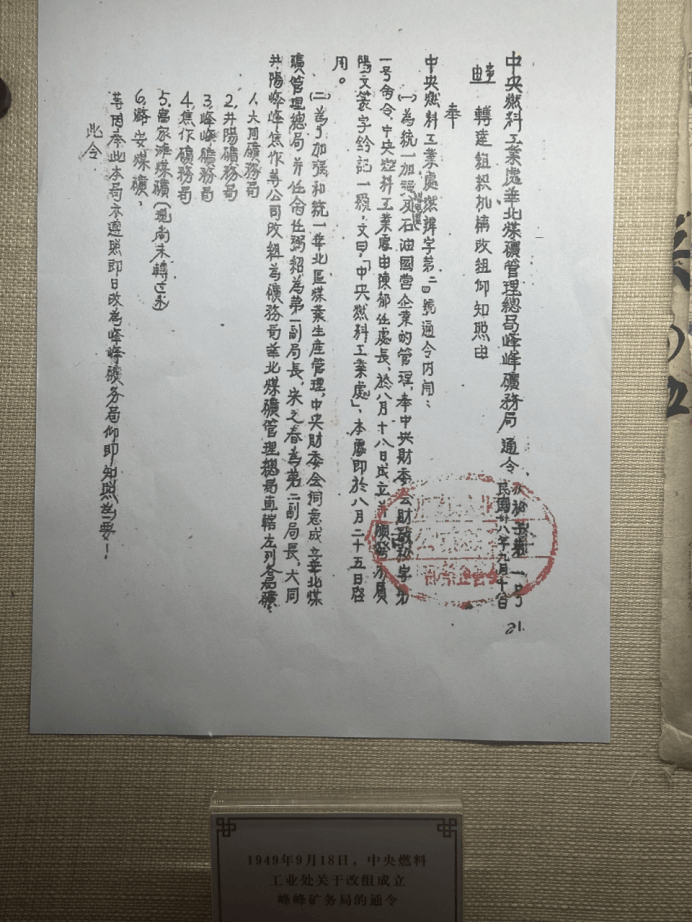 中央燃料工業處華北煤礦管理總局峰峰礦務局 通令
民國卅八年九月十八日
21
事由 轉達組织机構改組仰知照由
奉
中央燃料工業處煤辦字第二四號通令内開：
(一)為統一加强及石油國營企業的管理，奉中央財委会財政秘字第
一号命令，中央燃料工業處由陳郁任處長，於八月十八日成立，并
陽文篆字鈐記一顆，文曰，「中央燃料工業處」，本處即於八月二十五日啓
用。
(二)為了加强和統一華北區煤業生産管理，中央財委会同意成立華北煤
礦管理總局，并任命任弼紹為第一副局長，宋之春為第二副局長，大同
井陽峰峰焦作等公司改組為礦務局，華北煤礦管理總局直轄左列各局礦：
1.大同礦務局
2.井陽礦務局
3.峰峰礦務局
4.焦作礦務局
5.富家灘煤礦(現尚未轉过來)
6.潞安煤礦，
等因奉此本局亦遵照即日改為峰峰礦务局仰即知照為要！
此令
1949年9月18日，中央燃料
工业处关于改组成立
峰峰矿务局的通令